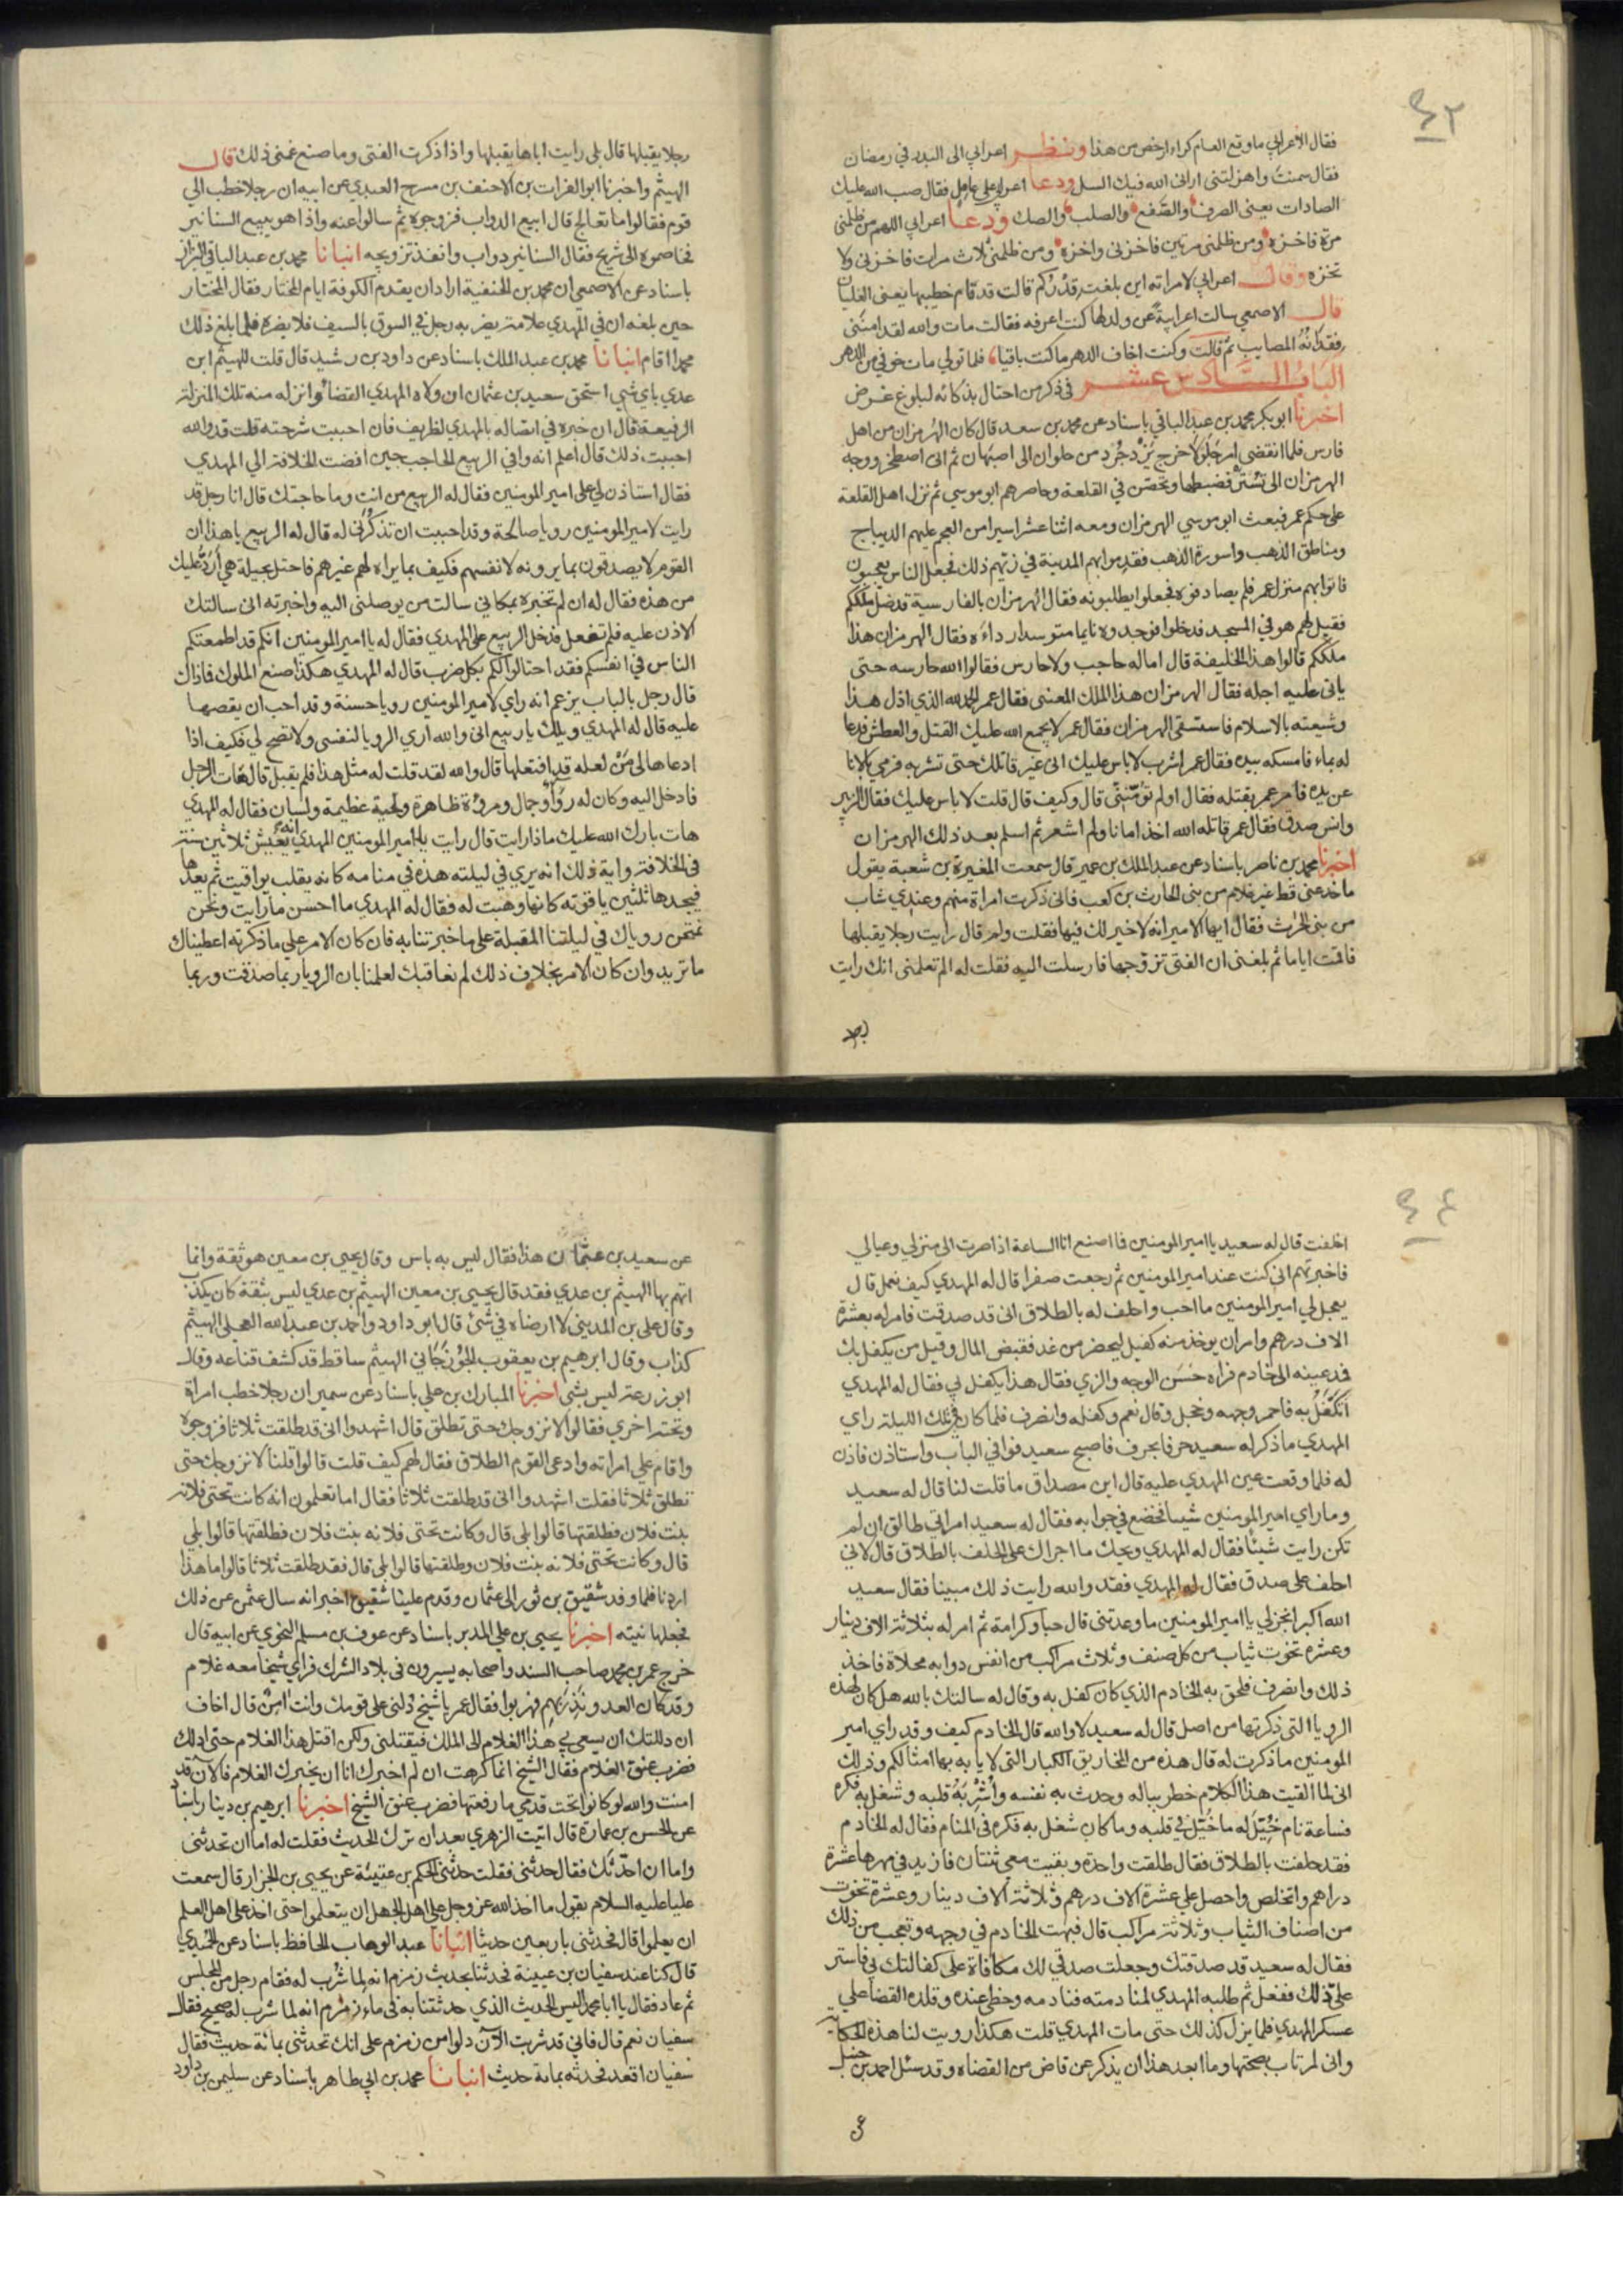 ٤٣
فقال الاعرابي ما وقع العام كراء ارخص من هذا ونظر اعرابي الى البدر في رمضان
فقال سمنت واهزلتني اراني الله فيك السل ودعا اعرابي على عامل فقال صب الله عليك
الصادات يعني الصرف والصفع والصلب والصك ودعا اعرابي اللهم من ظلمني
مرة فاخزه ومن ظلمني مرتين فاخزني واخزه ومن ظلمني ثلاث مرات فاخزني ولا
تخزه وقال اعرابي لامراته اين بلغت قدركم قالت قد قام خطيبها يعني الغليان
قال الاصمعي سالت اعرابية عن ولد لها كنت اعرفه فقالت مات والله لقد امنني
فقدانه المصايب ثم قالت وكنت اخاف الدهر ما كنت باقيا فلما تولى مات خوفي من الدهر
الباب السادس عشر في ذكر من احتال بذكائه لبلوغ غرض
اخبرنا ابوبكر محمد بن عبد الباقي باسناد عن محمد بن سعد قال كان الهرمزان من اهل
فارس فلما انقضى امر جلولا خرج يزدجرد من حلوان الى اصبهان ثم اتى اصطخر ووجه
الهرمزان الى تستر فضبطها وتحصن في القلعة وحاصرهم ابو موسي ثم نزل اهل القلعة
على حكم عمر فبعث ابو موسي الهرمزان ومعه اثنا عشر اسيرا من العجم عليهم الديباج
ومناطق الذهب واسورة الذهب فقدموا بهم المدينة في زيهم ذلك فجعل الناس يعجبون
فاتوا بهم منزل عمر فلم يصادفوه فجعلوا يطلبونه فقال الهرمزان بالفارسية قد ضل ملككم
فقيل لهم هو في المسجد فدخلوا فوجدوه نايما متوسدا رداءه فقال الهرمزان هذا
ملككم قالوا هذا الخليفة قال اما له حاجب ولا حارس فقالوا الله حارسه حتى
ياتي عليه اجله فقال الهرمزان هذا الملك المعنى فقال عمر الحمد لله الذي اذل هذا
وشيعته بالاسلام فاستسقى الهرمزان فقال عمر لا يجمع الله عليك القتل والعطش فدعا
له بماء فامسكه بيده فقال عمر اشرب لا باس عليك اني غير قاتلك حتى تشربه فرمي بالانا
عن يده فامر عمر بقتله فقال اولم تؤمنني قال وكيف قال قلت لا باس عليك فقال الزبير
وانس صدق فقال عمر قاتله الله اخذ امانا ولم اشعر ثم اسلم بعد ذلك الهرمزان
اخبرنا محمد بن ناصر باسناد عن عبد الملك بن عمير قال سمعت المغيرة بن شعبة يقول
ما خدعني قط غير غلام من بني الحارث بن كعب فاني ذكرت امراة منهم وعندي شاب
من بني الحرث فقال ايها الامير انه لا خير لك فيها فقلت ولم قال رايت رجلا يقبلها
فاقمت اياما ثم بلغني ان الفتى تزوجها فارسلت اليه فقلت له الم تعلمني انك رايت
رجلا يقبلها قال بلى رايت اباها يقبلها واذا ذكرت الفتى وما صنع غمني ذلك قال
الهيثم واخبرنا ابو الفرات بن الاحنف بن مسرح العبدي عن ابيه ان رجلا خطب الي
قوم فقالوا ما تعالج قال ابيع الدواب فزوجوه ثم سالوا عنه واذا هو يبيع السنانير
فخاصموه الى شريح فقال السنانير دواب وانفذ تزويجه انبانا محمد بن عبد الباقي البزاز
باسناد عن الاصمعي ان محمد بن الحنفية اراد ان يقدم الكوفة ايام المختار فقال المختار
حين بلغه ان في المهدي علامة يضربه رجل في السوق بالسيف فلا يضره فلما بلغ ذلك
محمدا اقام انبانا محمد بن عبد الملك باسناد عن داود بن رشيد قال قلت للهيثم ابن
عدي باي شي استحق سعيد بن عثمان ان ولاه المهدي القضا وانزله منه تلك المنزلة
الرفيعة قال ان خبره في اتصاله بالمهدي لظريف فان احببت شرحته قلت قد والله
احببت ذلك قال اعلم انه وافي الربيع الحاجب حين افضت الخلافة الي المهدي
فقال استاذن لي على امير المومنين فقال له الربيع من انت وما حاجتك قال انا رجل قد
رايت لامير المومنين رويا صالحة وقد احببت ان تذكرني له قال له الربيع يا هذا ان
القوم لا يصدقون بما يرونه لانفسهم فكيف بما يراه لهم غيرهم فاحتل بحيلة هي ارد عليك
من هذه فقال له ان لم تخبره بمكاني سالت من يوصلني اليه واخبرته اني سالتك
الاذن عليه فلم تفعل فدخل الربيع على المهدي فقال له يا امير المومنين انكم قد اطمعتكم
الناس في انفسكم فقد احتالوا لكم بكل ضرب قال له المهدي هكذا صنع الملوك فما ذاك
قال رجل بالباب يزعم انه راي لامير المومنين رويا حسنة وقد احب ان يقصها
عليه قال له المهدي ويلك يا ربيع اني والله اري الرويا لنفسي ولا تصح لي فكيف اذا
ادعاها لي من لعله قد افتعلها قال والله لقد قلت له مثل هذا فلم يقبل قال هات الرجل
فادخل اليه وكان له رواء وجمال ومروة ظاهرة ولحية عظيمة ولسان فقال له المهدي
هات بارك الله عليك ماذا رايت قال رايت يا امير المومنين المهدي انه يعيش ثلاثين سنة
في الخلافة واية ذلك انه يري في ليلته هذه في منامه كانه يقلب يواقيت ثم يعدها
فيجدها ثلثين ياقوتة كانها وهبت له فقال له المهدي ما احسن ما رايت ونحن
نمتحن روياك في ليلتنا المقبلة على ما خبرتنا به فان كان الامر علي ما ذكرته اعطيناك
ما تريد وان كان الامر بخلاف ذلك لم نعاقبك لعلمنا بان الرويا ربما صدقت وربما
٤٤
اخلفت قال له سعيد يا امير المومنين فما اصنع انا الساعة اذا صرت الى منزلي وعيالي
فاخبرتهم اني كنت عند امير المومنين ثم رجعت صفرا قال له المهدي كيف نعمل قال
يعجل لي امير المومنين ما احب واحلف له بالطلاق اني قد صدقت فامر له بعشرة
الاف درهم وامر ان يوخذ منه كفيل ليحضر من غد فقبض المال وقيل من يكفل بك
فمد عينه الى خادم فراه حسن الوجه والزي فقال هذا يكفل لي فقال له المهدي
اتكفل به فاحمر وجهه وخجل وقال نعم وكفله وانصرف فلما كان في تلك الليلة راي
المهدي ما ذكر له سعيد حرفا بحرف فاصبح سعيد فوافي الباب واستاذن فاذن
له فلما وقعت عين المهدي عليه قال اين مصداق ما قلت لنا قال له سعيد
وما راي امير المومنين شيئا فخضع في جوابه فقال له سعيد امراتي طالق ان لم
تكن رايت شيئا فقال له المهدي ويحك ما اجراك على الحلف بالطلاق قال لاني
احلف على صدق فقال له المهدي فقد والله رايت ذلك مبينا فقال سعيد
الله اكبر انجز لي يا امير المومنين ما وعدتني قال حبا وكرامة ثم امر له بثلاثة الاف دينار
وعشرة تخوت ثياب من كل صنف وثلاث مراكب من انفس دوابه محلاة فاخذ
ذلك وانصرف فلحق به الخادم الذي كان كفل به وقال له سالتك بالله هل كان لهذه
الرويا التي ذكرتها من اصل قال له سعيد لا والله قال الخادم كيف وقد راي امير
المومنين ما ذكرت له قال هذه من المخاريق الكبار التي لا يابه بها امثالكم وذلك
اني لما القيت هذا الكلام خطر بباله وحدث به نفسه واشربه قلبه وشغل به فكره
فساعة نام خيل له ما خيل في قلبه وما كان شغل به فكره في المنام فقال له الخادم
فقد حلفت بالطلاق فقال طلقت واحدة وبقيت معي ثنتان فازيد في مهرها عشرة
دراهم واتخلص واحصل علي عشرة الاف درهم وثلاثة الاف دينار وعشرة تخوت
من اصناف الثياب وثلاثة مراكب قال فبهت الخادم في وجهه وتعجب من ذلك
فقال له سعيد قد صدقتك وجعلت صدقي لك مكافاة على كفالتك بي فاستر
علي ذلك ففعل ثم طلبه المهدي لمنادمته فنادمه وحظي عنده وقلده القضا علي
عسكر المهدي فلم يزل كذلك حتى مات المهدي قلت هكذا رويت لنا هذه الحكاية
واني لمرتاب بصحتها وما ابعد هذا ان يذكر عن قاض من القضاه وقد سئل احمد بن حنبل
عن سعيد بن عثمان هذا فقال ليس به باس وقال يحيى بن معين هو ثقة وانما
اتهم بها الهيثم بن عدي فقد قال يحيى بن معين الهيثم بن عدي ليس بثقة كان يكذب
وقال علي بن المديني لا ارضاه في شئ قال ابو داود واحمد بن عبد الله العجلي الهيثم
كذاب وقال ابرهيم بن يعقوب الجوزجاني الهيثم ساقط قد كشف قناعه وقال
ابو زرعة ليس بشي اخبرنا المبارك بن علي باسناد عن سمير ان رجلا خطب امراة
وتحته اخري فقالوا لا نزوجك حتى تطلق قال اشهدوا اني قد طلقت ثلاثا فزوجوه
واقام علي امراته وادعى القوم الطلاق فقال لهم كيف قلت قالوا قلنا لا نزوجك حتى
تطلق ثلاثا فقلت اشهدوا اني قد طلقت ثلاثا فقال اما تعلمون انه كانت تحتي فلانة
بنت فلان فطلقتها قالوا بلى قال وكانت تحتي فلانه بنت فلان فطلقتها قالوا بلي
قال وكانت تحتي فلانه بنت فلان وطلقتها قالوا بلى قال فقد طلقت ثلاثا قالوا ما هذا
اردنا فلما وفد شقيق بن ثور الى عثمان وقدم علينا شقيق اخبر انه سال عثمن عن ذلك
فجعلها نيته اخبرنا يحيى بن علي المدبر باسناد عن عوف بن مسلم النحوي عن ابيه قال
خرج عمر بن محمد صاحب السند واصحابه يسيرون في بلاد الشرك فراي شيخا معه غلام
وقد كان العدو نذر بهم فهربوا فقال عمر يا شيخ دلني على قومك وانت امن قال اخاف
ان دللتك ان يسعى بي هذا الغلام الى الملك فيقتلني ولكن اقتل هذا الغلام حتى ادلك
فضرب عنق الغلام فقال الشيخ انما كرهت ان لم اخبرك انا ان يخبرك الغلام فالان قد
امنت والله لو كانوا تحت قدمي ما رفعتها فضرب عنق الشيخ اخبرنا ابرهيم بن دينار باسناد
عن الحسن بن عمارة قال اتيت الزهري بعد ان ترك الحديث فقلت له اما ان تحدثني
واما ان احدثك فقال حدثني فقلت حدثني الحكم بن عتيبة عن يحيى بن الجزار قال سمعت
عليا عليه السلام يقول ما اخذ الله عز وجل على اهل الجهل ان يتعلموا حتى اخذ على اهل العلم
ان يعلموا قال فحدثني باربعين حديثا انبانا عبد الوهاب الحافظ باسناد عن الحميدي
قال كنا عند سفيان بن عيينة فحدثنا بحديث زمزم انه لما شرب له فقام رجل من المجلس
ثم عاد فقال يا ابا محمد اليس الحديث الذي حدثتنا به في ماء زمزم انه لما شرب له صحيح فقال
سفيان نعم قال فاني قد شربت الآن دلوا من زمزم على انك تحدثني بمائة حديث فقال
سفيان اقعد فحدثه بماية حديث انبانا محمد بن ابي طاهر باسناد عن سليمن بن داود